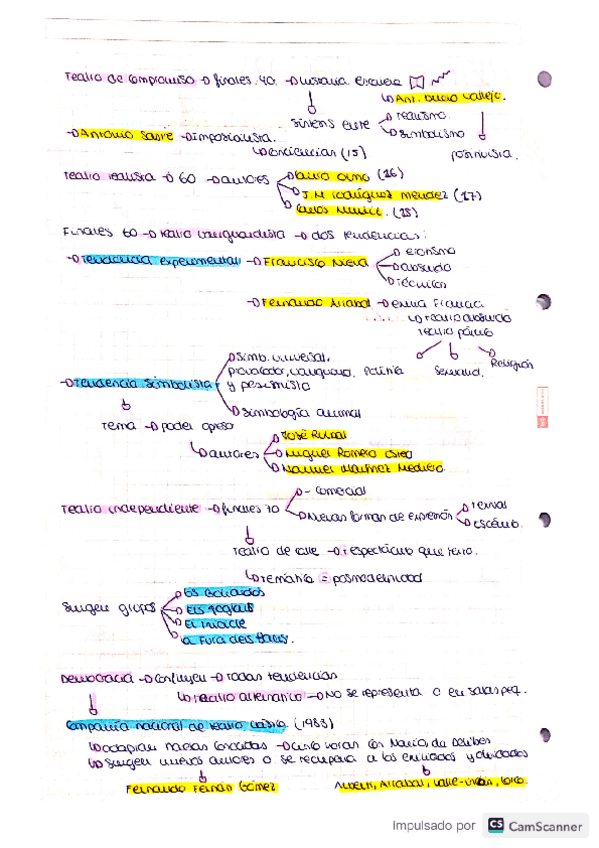 Teatro de compromiso → finales 40 → Historia Escalera
→ Ant. Buero Vallejo.
síntesis entre → realismo
→ simbolismo
posibilista.
→ Antonio Sastre → imposibilista.
→ conciencias (15)
Teatro realista → 60 → autores → Lauro Olmo (16)
→ J.M Rodríguez Mendez (17)
→ Carlos Muñiz. (18)
Finales 60 → teatro vanguardista → dos tendencias:
→ Tendencia experimental → Francisco Nieva → erotismo
→ absurdo
→ técnicas
→ Fernando Arrabal →
→ teatro absurdo
teatro pánico
Patria Sexualidad. Religión
→ Tendencia simbolista → simb. universal,
provocador, vanguard.
y pesimista
→ simbología animal
Tema → poder opresor
→ autores → José Ruibal
→ Miguel Romero Esteo
→ Manuel Martínez Mediero
Teatro independiente → finales 70 → - comercial
→ Nuevas formas de expresión → temas
→ escénico.
teatro de calle → espectáculo que
→ temática = posmodernidad
Surgen grupos → Els Goliardos
→ Els Joglars
→ El
→ La Fura dels Baus.
Democracia → confluyen → todas tendencias
→ teatro alternativo → No se representa o en salas peq.
Compañía nacional de teatro clásico. (1983)
→ adaptan nuevas → cinco horas con Mario, de Delibes
→ Surgen nuevos autores o se recupera a los exiliados y olvidados
Fernando Fernán Gómez
Alberti, Arrabal, Valle-Inclán, Lorca.
Impulsado por CS CamScanner